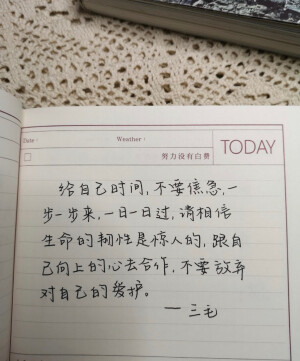 Date :
Weather :
努力没有白费
TODAY
给自己时间,不要焦急,一
步一步来,一日一日过,请相信
生命的韧性是惊人的,跟自
己向上的心去合作,不要放弃
对自己的爱护。
一三毛